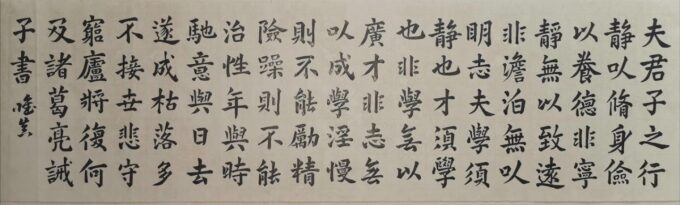 夫君子之行
靜以脩身儉
以養德非寧
靜無以致遠
非澹泊無以
明志夫學須
靜也才須學
也非學無以
廣才非志無
以成學淫慢
則不能勵精
險躁則不能
治性年與時
馳意與日去
遂成枯落多
不接世悲守
窮廬將復何
及諸葛亮誡
子書